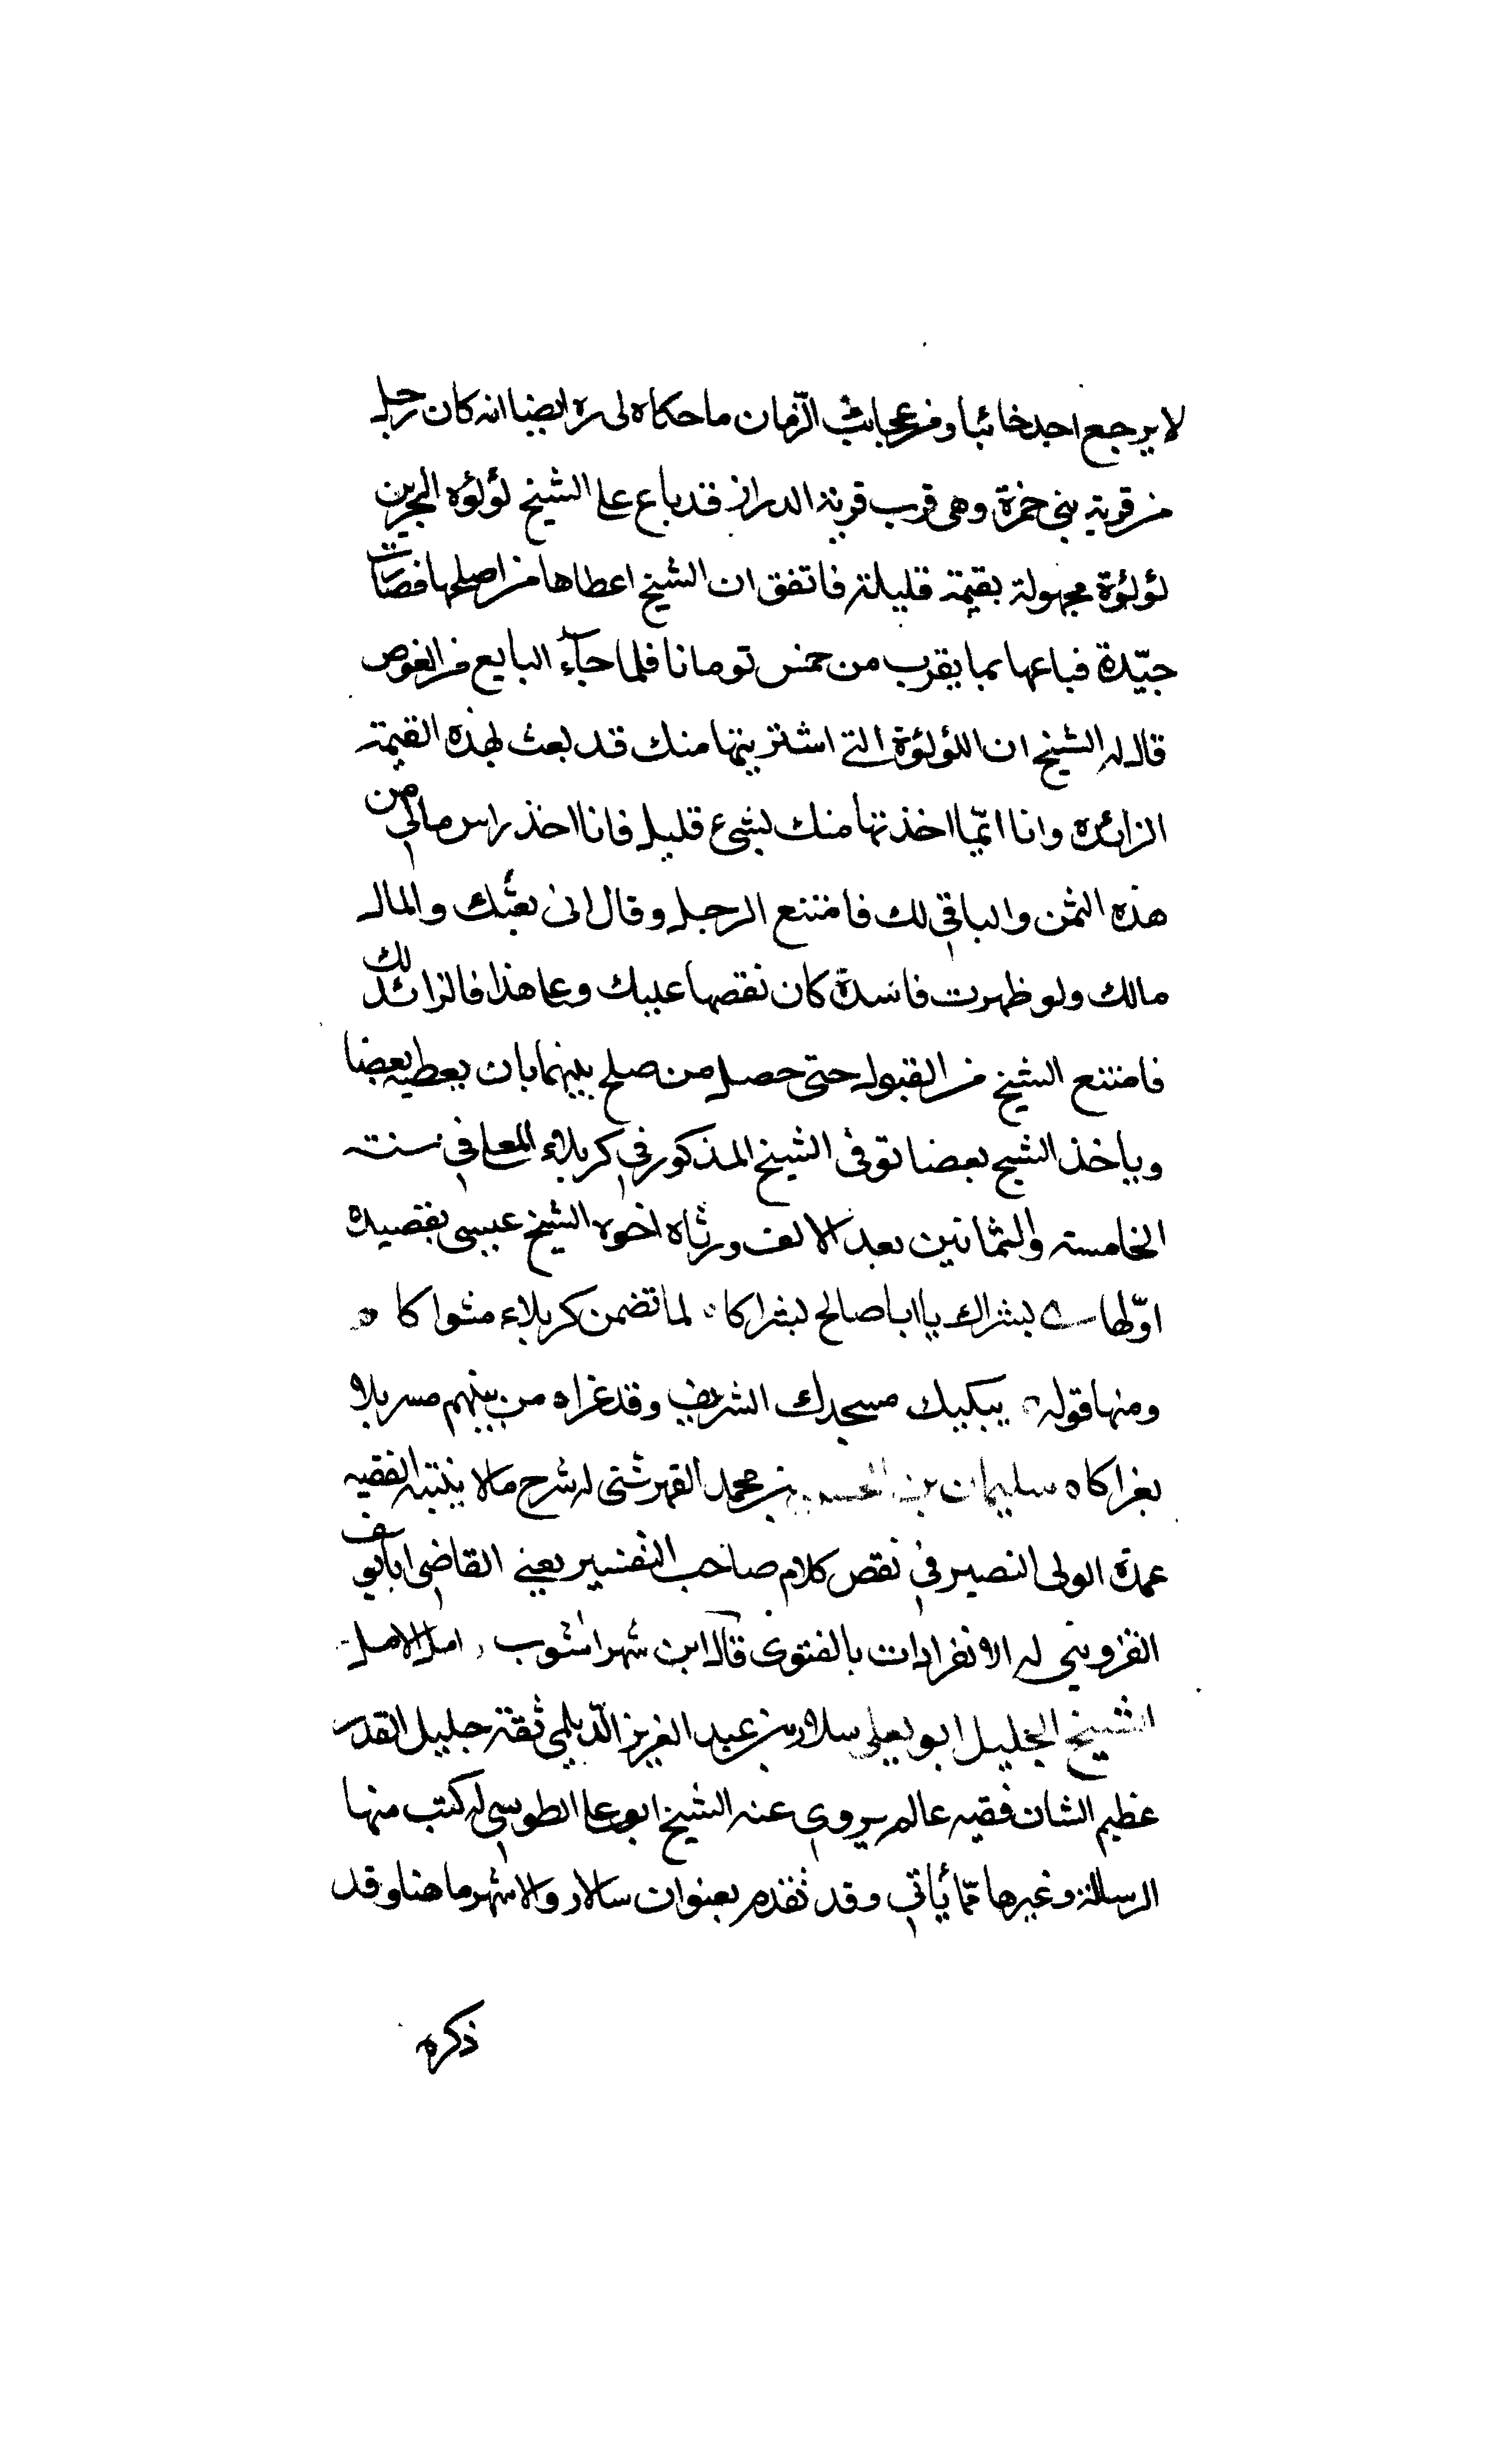 لا يرجع احد خائبا و من عجائب الزّمان ما حكاه لى ره ايضا انه كان رجل
من قرية بنى حمزة وهى قرب قرية الدراز قد باع على الشيخ لؤلؤه البحرين
لؤلؤة مجهولة بقيمة قليلة فاتفق ان الشيخ اعطاها من اصلحها فصارت
جيّدة فباعها بما يقرب من خمس تومانا فلما جآء البايع من الغوص
قال له الشيخ ان اللؤلؤة التي اشتريتها منك قد بعت بهذه القيمة
الزائده وانا انّما اخذتها منك بشىء قليل فانا اخذ راس مالي من
هذه الثمن والباقي لك فامتنع الرجل وقال انى بعتك والمال
مالك ولو ظهرت فاسدة كان نقصها عليك وعلى هذا فالزائد لك
فامتنع الشيخ من القبول حتى حصل من صلح بينهما بان يعطيه بعضا
وياخذ الشيخ بعضا توفى الشيخ المذكور في كربلاء المعلى في سنة
الخامسة والثمانين بعد الالف ورثاه اخوه الشيخ عيسى بقصيده
اوّلها بشراك يا ابا صالح بشراكا لما تضمن كربلاء مثواكا
ومنها قوله يبكيك مسجدك الشريف وقد غراه من بينهم
بغراكاه سليمان بن الحسن بن محمد القهرشتى له شرح مالا يتنبه الفقيه
عمدة الولى النصير في نقض كلام صاحب التفسير يعنى القاضي ابا يوسف
القزوينى له الانفرادات بالفتوى قاله ابن شهراشوب امل الامل
الشيخ الجليل ابو يعلى سلار بن عبد العزيز الدّيلمى ثقة جليل القدر
عظيم الشان فقيه عالم يروي عنه الشيخ ابو على الطوسي له كتب منها
الرسالة وغيرها ممّا يأتي وقد تقدم بعنوان سالار والاشهر ما هنا وقد
ذكره